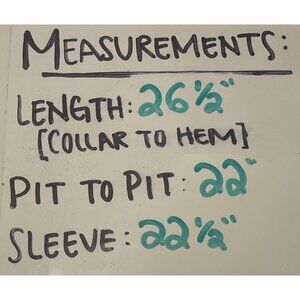 MEASUREMENTS:
LENGTH: 26 1/2"
[COLLAR TO HEM]
PIT TO PIT: 22"
SLEEVE: 22 1/2"